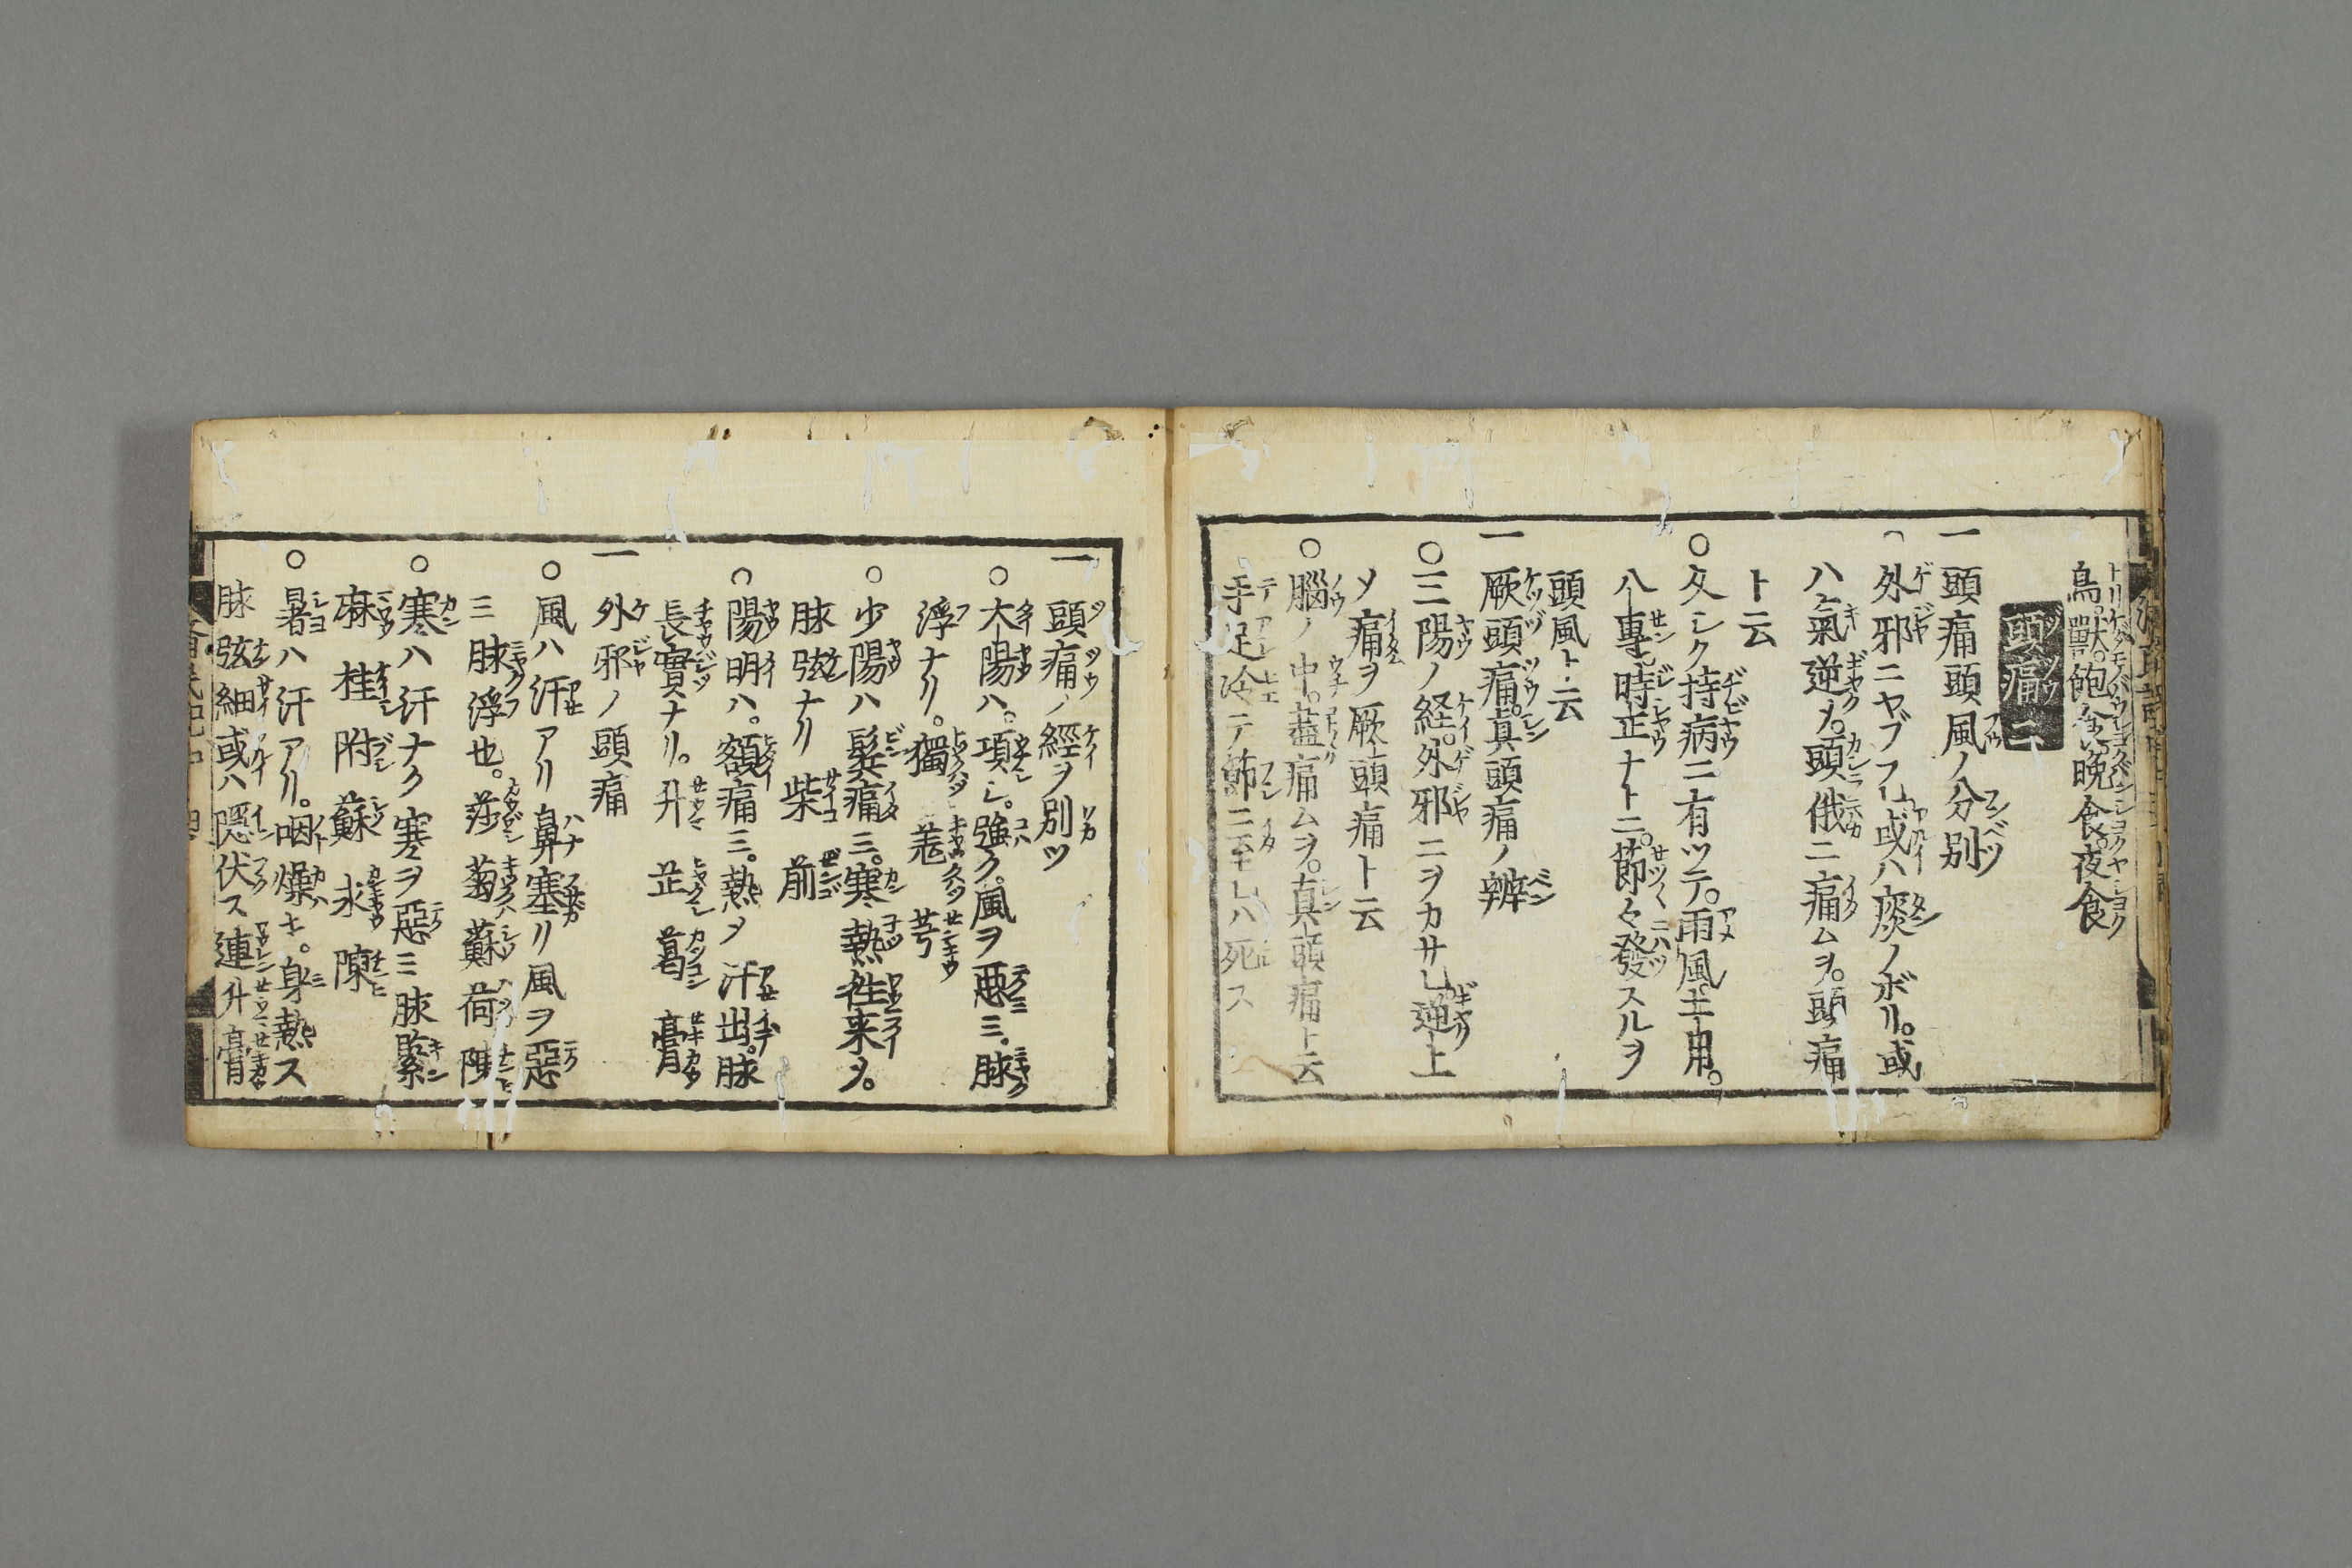 鳥。獸。飽食晩食。夜食
頭痛二
一 頭痛頭風ノ分別
○ 外邪ニヤブラレ或ハ痰ノボリ。或
ハ氣逆メ。頭俄ニ痛ムヲ。頭痛
ト云
○ 久シク持病ニ有ツテ。雨風土用。
八專時正ナトニ。節々發スルヲ
頭風ト云
一 厥頭痛。真頭痛ノ辨
○ 三陽ノ経。外邪ニヲカサレ逆上
メ痛ヲ厥頭痛ト云
○ 腦ノ中。盡痛ムヲ。真頭痛ト云
手足冷テ節ニ至レハ死ス
一 頭痛ノ經ヲ別ツ
○ 太陽ハ。項シ。強ク。風ヲ惡ミ。脉
浮ナリ。獨 羗 芎
○ 少陽ハ鬂痛ミ。寒熱徃来ヲ。
脉弦ナリ 柴 前
○ 陽明ハ。額痛ミ。熱メ汗出。脉
長實ナリ。升 芷 葛 膏
一 外邪ノ頭痛
○ 風ハ汗アリ鼻塞リ風ヲ惡
ミ脉浮也。莎 菊 蘇 荷 陳
○ 寒ハ汗ナク寒ヲ惡ミ脉緊
麻 桂 附 蘇 求 陳
○ 暑ハ汗アリ。咽燥キ。身熱ス
脉弦細或ハ隠伏ス連 升 膏